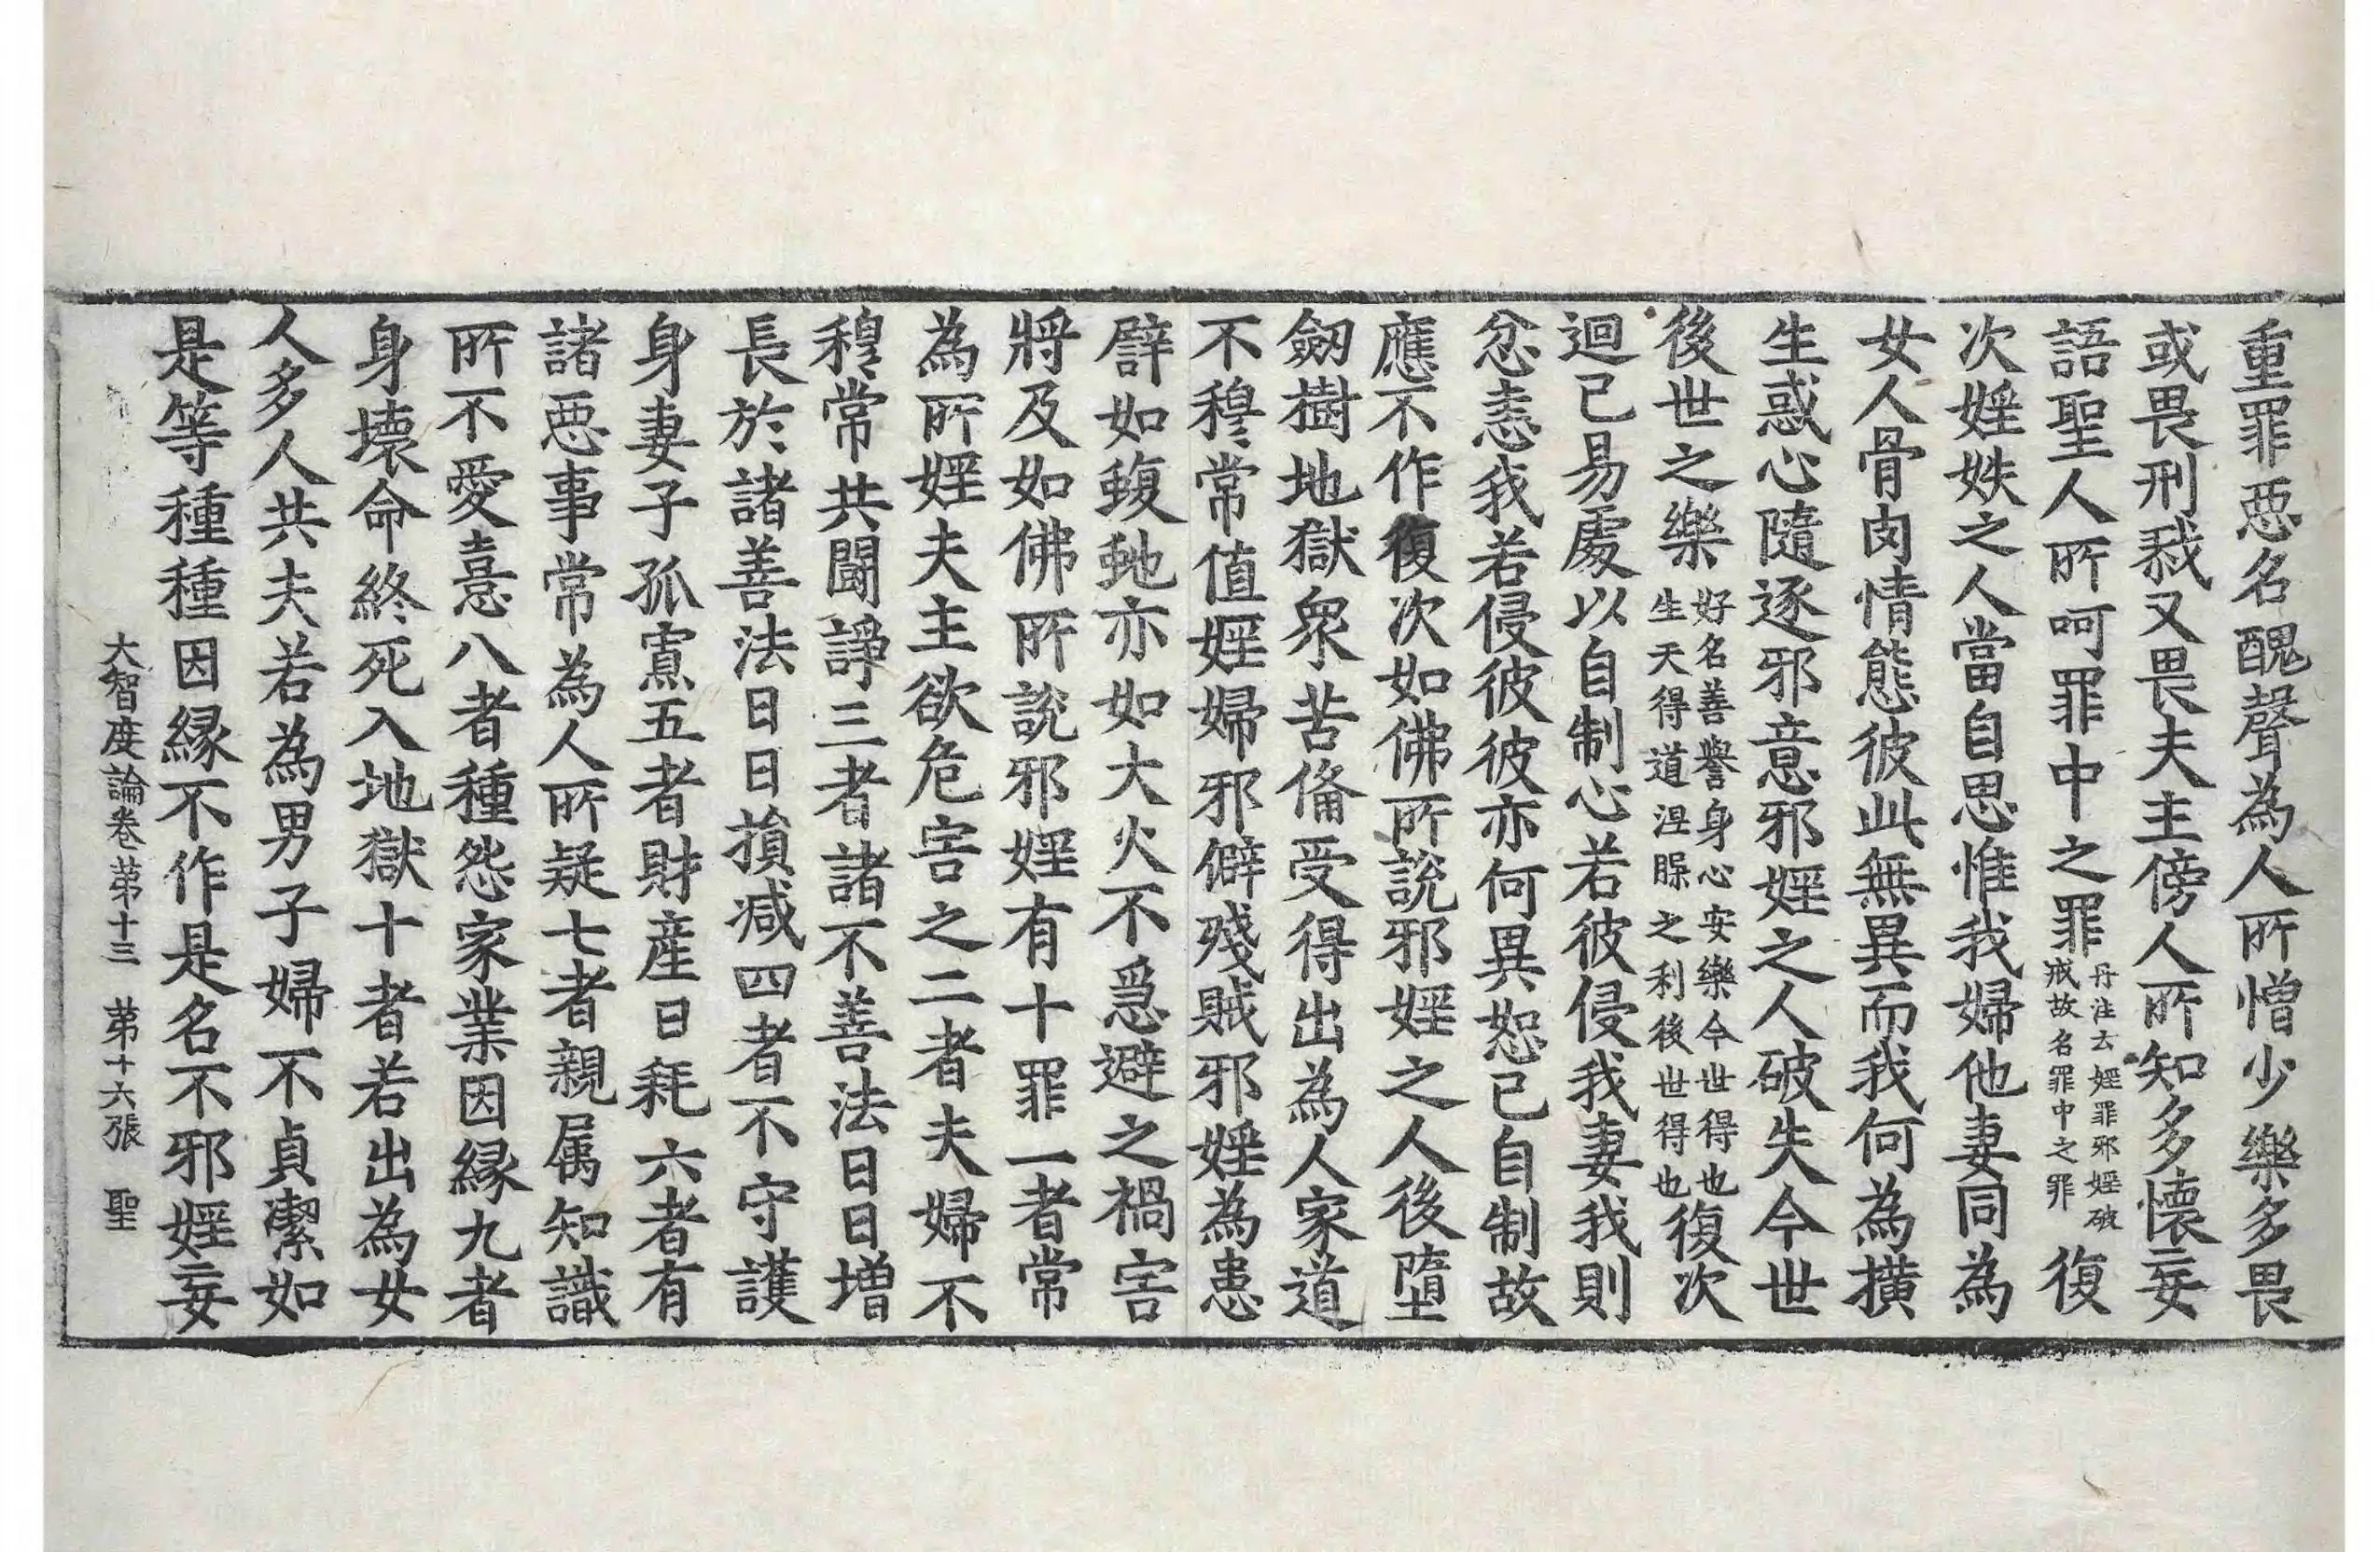 重罪惡名醜聲為人所憎少樂多畏
或畏刑戮又畏夫主傍人所知多懷妄
語聖人所呵罪中之罪丹注云婬罪邪婬破戒故名罪中之罪復
次婬妷之人當自思惟我婦他妻同為
女人骨肉情態彼此無異而我何為橫
生惑心隨逐邪意邪婬之人破失今世
後世之樂好名善譽身心安樂今世得也生天得道涅槃之利後世得也復次
迴已易處以自制心若彼侵我妻我則
忿恚我若侵彼彼亦何異恕己自制故
應不作復次如佛所說邪婬之人後墮
劒樹地獄衆苦俻受得出為人家道
不穆常值婬婦邪僻殘賊邪婬為患
譬如蝮虵亦如大火不急避之禍害
將及如佛所說邪婬有十罪一者常
為所婬夫主欲危害之二者夫婦不
穆常共鬪諍三者諸不善法日日增
長於諸善法日日損減四者不守護
身妻子孤寡五者財産日耗六者有
諸惡事常為人所疑七者親属知識
所不愛憙八者種怨家業因縁九者
身壞命終死入地獄十者若出為女
人多人共夫若為男子婦不貞潔如
是等種種因縁不作是名不邪婬妄
大智度論卷第十三 第十六張 聖